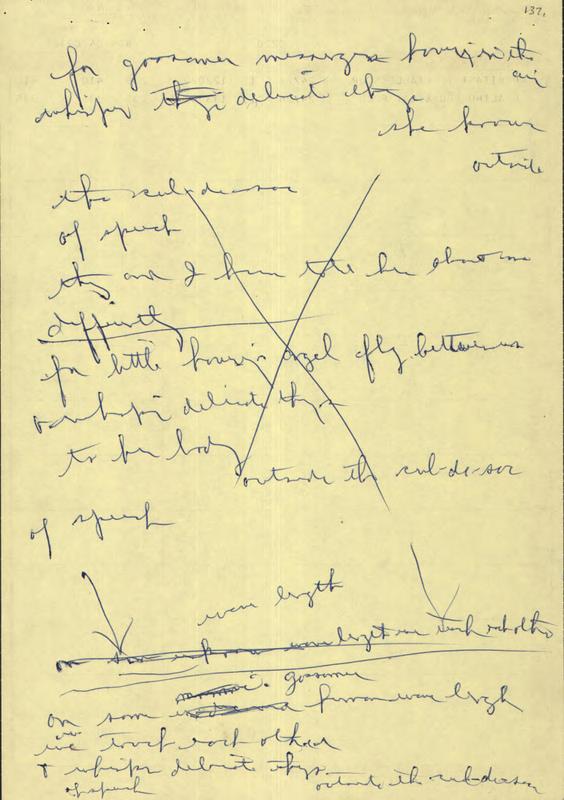 137.
for gossamer messengers hovering in the
air
whisper things delicate things
she knows
outside
the cul-de-sac
of speech
they and I have told her about me
differently
for little hovering angel fly between us
whisper delicate things
to her body
outside the cul-de-sac
of speech
wave length
on some unknown wave length we touch each other
gossamer
on some human wave length
we touch each other
& whisper delicate things
outside the cul-de-sac
of speech